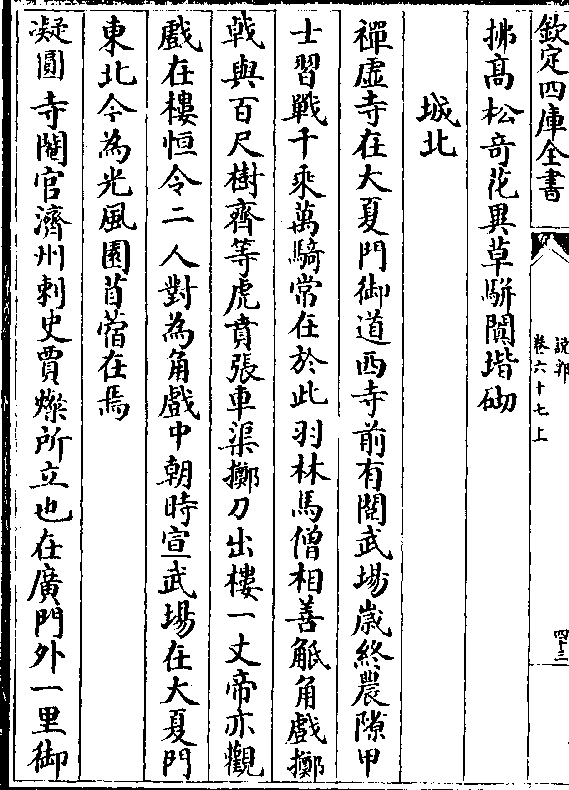 欽定四庫全書
說郛
卷六十七上
四十三
拂高松奇花異草駢闐堦砌
城北
禪虚寺在大夏門御道西寺前有閱武場歳終農隙甲
士習戰千乘萬騎常在於此羽林馬僧相善觝角戲擲
戟與百尺樹齊等虎賁張車渠擲刀出樓一丈帝亦觀
戲在樓恒令二人對為角戲中朝時宣武場在大夏門
東北今為光風園苜蓿在焉
凝圓寺閹官濟州刺史賈燦所立也在廣門外一里御